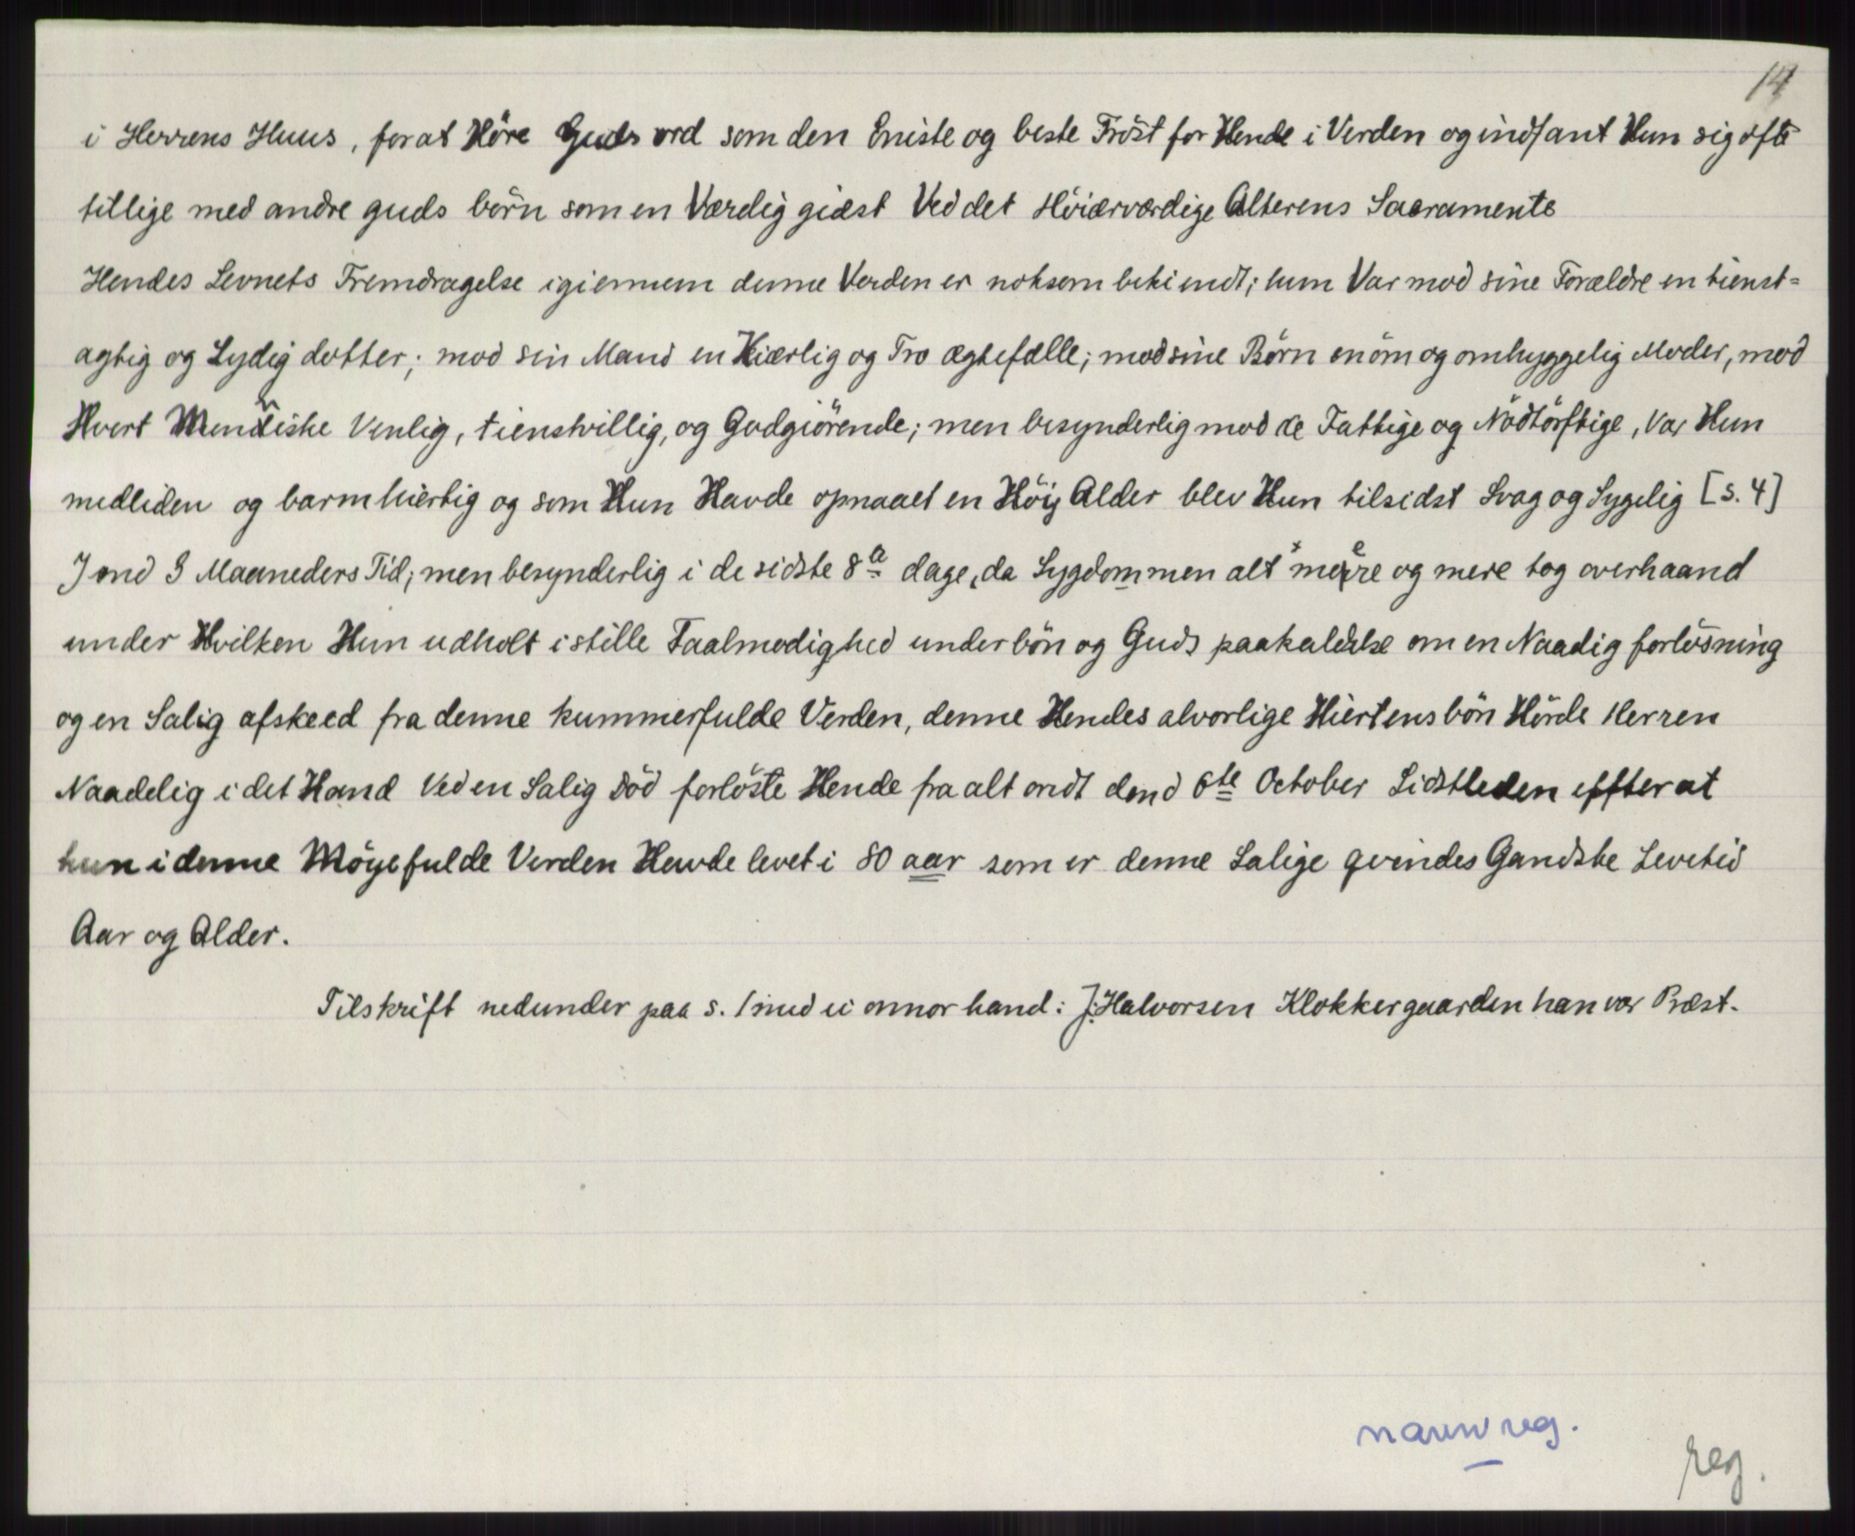 14
i Herrens Huus, for at Höre Guds ord som den Eniste og beste Tröst for Hende i Verden og indfant Hun sig ofte
tillige med andre guds börn som en Værdig giæst Ved det Höiærværdige Alterens Sacramente
Hendes Levnets Fremdragelse igiennem denne Verden er noksom bekiendt; hun Var mod sine Forældre en tienst=
agtig og Lydig dotter; mod sin Mand en Kiærlig og Tro ægtefælle; mod sine Børn en öm og omhyggelig Moder, mod
Hvert Menniske Venlig, tienstvillig, og Godgiörende; men besynderlig mod de Fattige og Nödtörftige, Var Hun
medliden og barmhiertig og som Hun Havde opnaaet en Höij Alder blev Hun tilsidst Svag og Sygelig [s. 4]
J ond 3 Maaneders Tid; men besynderlig i de sidste 8te dage, da Sygdommen alt mere og mere tog overhaand
under Hvilken Hun udholt i stille Taalmodighed under bön og Guds paakaldelse om en Naadig forlösning
og en Salig afskeed fra denne kummerfulde Verden, denne Hendes alvorlige Hiertens bön Hörde Herren
Naadelig i det Hand Ved en Salig Död forlöste Hende fra alt ondt dend 6te October Sidstleden effter at
hun i denne Möyefulde Verden Havde levet i 80 aar som er denne Salige qvindes Gandske Levetid
Aar og Alder.
Tilskrift nedunder paa s. 1 med ei onnor hand: J. Halvorsen Klokkergaarden han var Præst.
navnreg.
reg.